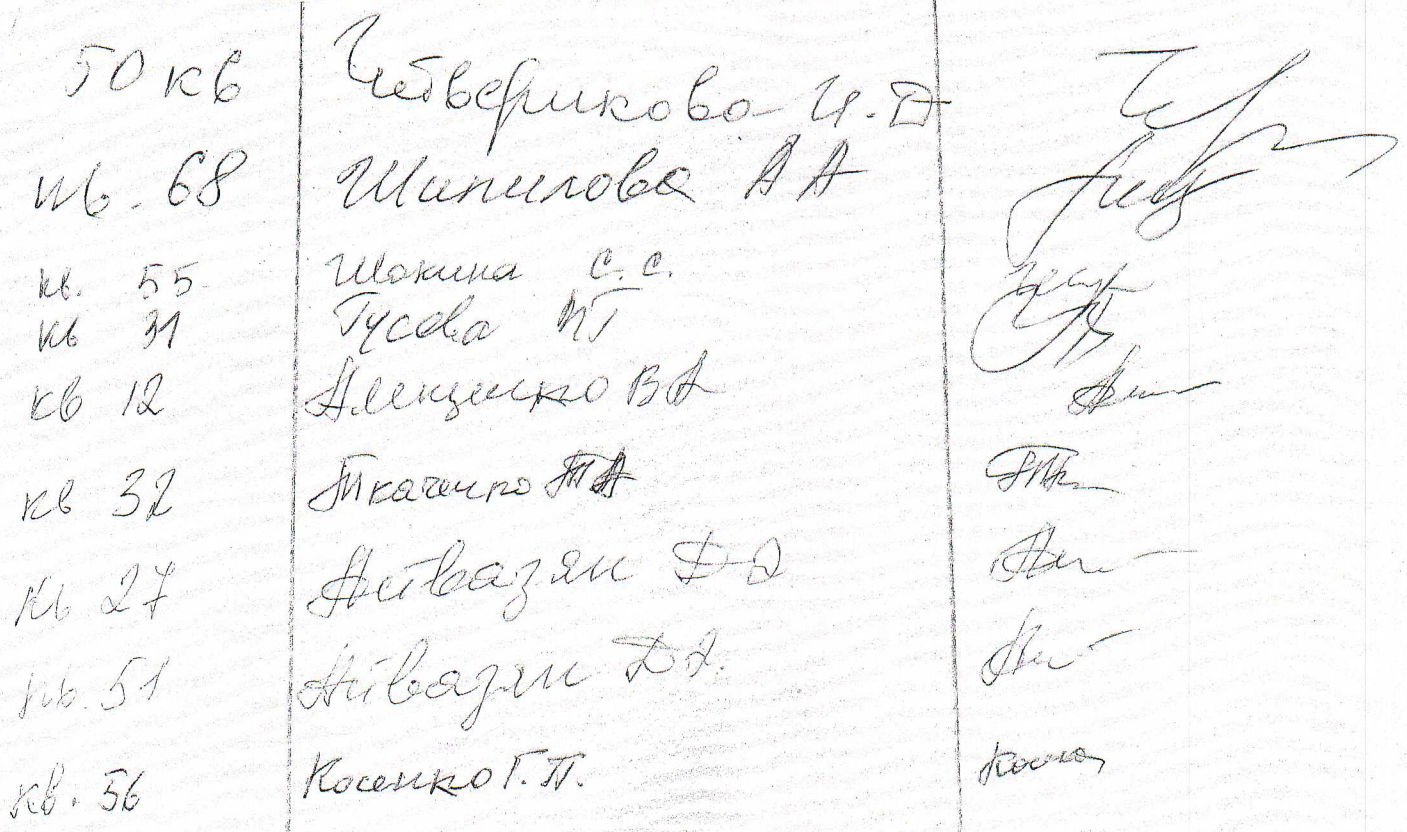 50 кв Четверикова И.Д
кв. 68 Шипилова А А
кв. 55 Шокина С. С.
кв 31 Гусева
кв 12 Алещенко В А
кв 32 Ткаченко Т А
кв 27 Айвазян Д Д
кв. 51 Айвазян Д Д.
кв. 56 Косенко Г. П.